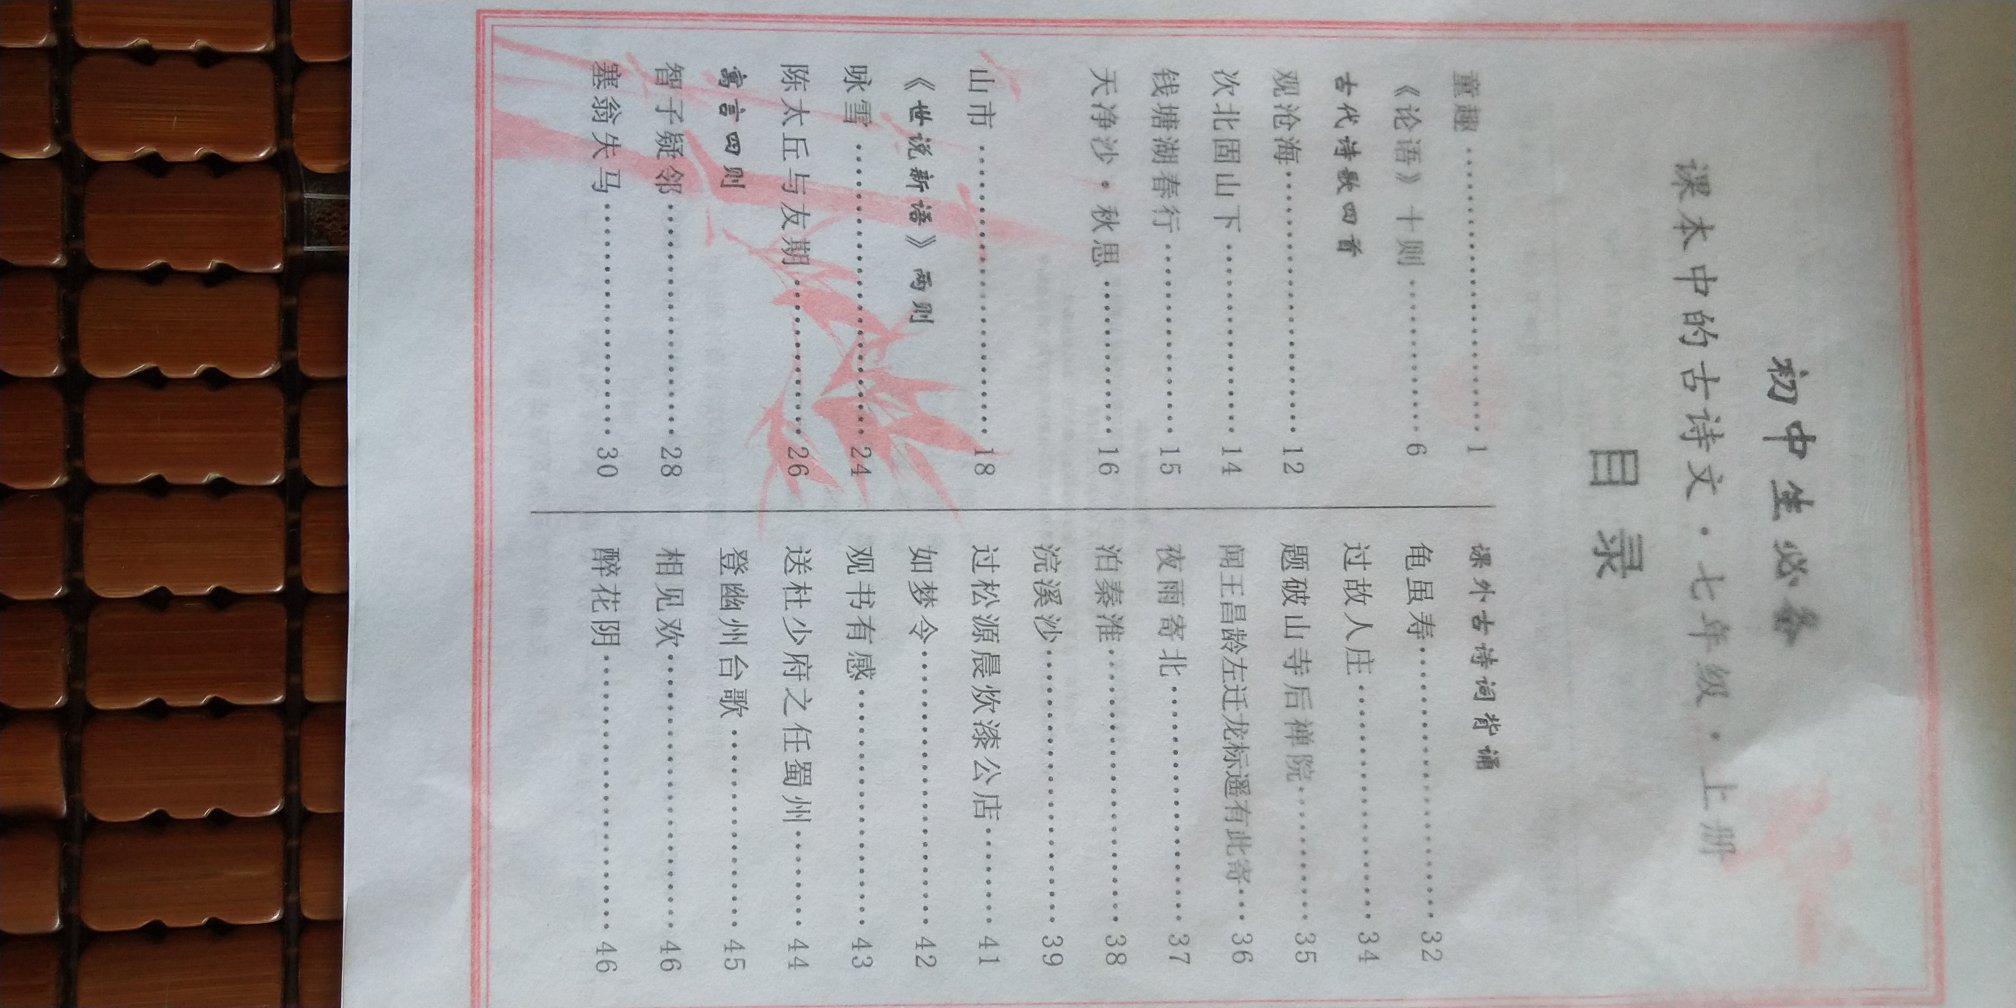 初中生必备
课本中的古诗文·七年级·上册
目录
童趣……………………1
《论语》十则…………6
古代诗歌四首
观沧海…………………12
次北固山下……………14
钱塘湖春行……………15
天净沙·秋思…………16
山市……………………18
《世说新语》两则
咏雪……………………24
陈太丘与友期…………26
寓言四则
智子疑邻………………28
塞翁失马………………30
课外古诗词背诵
龟虽寿…………………32
过故人庄………………34
题破山寺后禅院………35
闻王昌龄左迁龙标遥有此寄…36
夜雨寄北………………37
泊秦淮…………………38
浣溪沙…………………39
过松源晨炊漆公店……41
如梦令…………………42
观书有感………………43
送杜少府之任蜀州……44
登幽州台歌……………45
相见欢…………………46
醉花阴…………………46